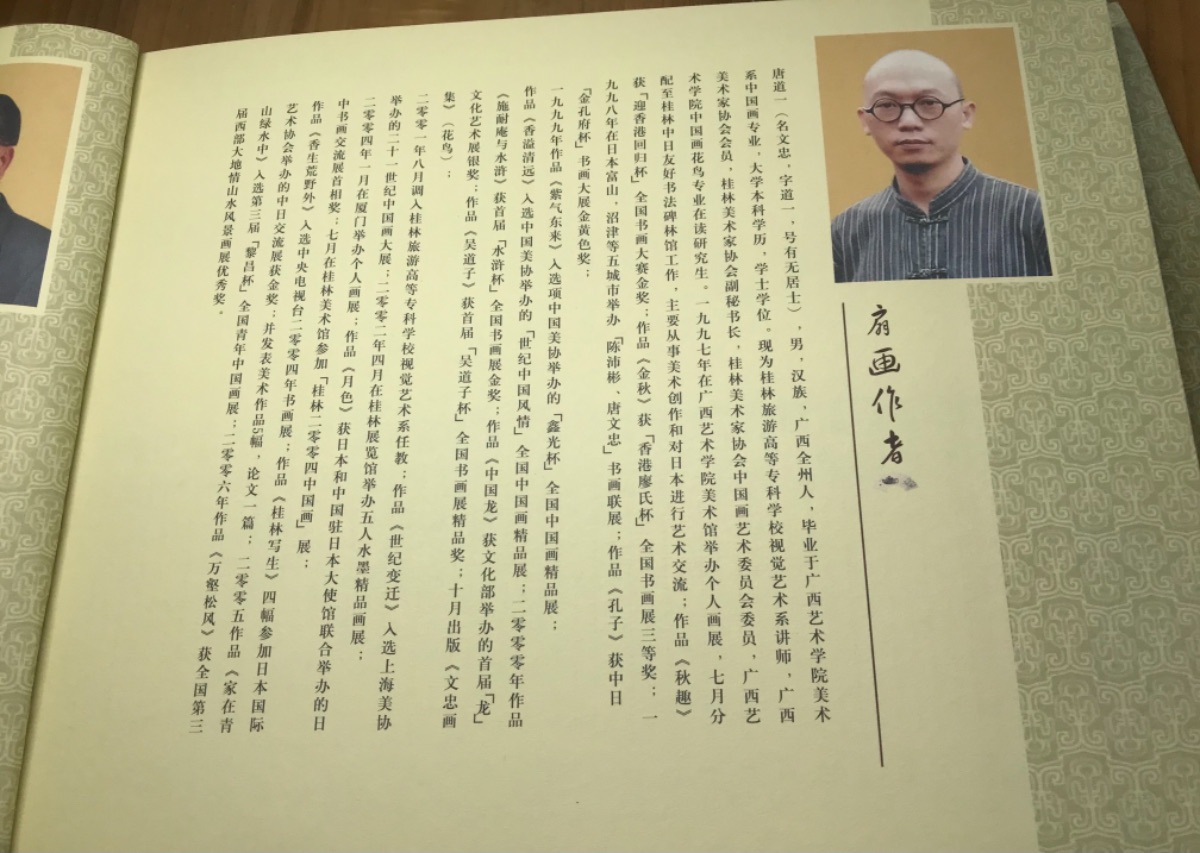 扇画作者
唐道一（名文忠，字道一，号有无居士），男，汉族，广西全州人，毕业于广西艺术学院美术
系中国画专业，大学本科学历，学士学位。现为桂林旅游高等专科学校视觉艺术系讲师，广西
美术家协会会员，桂林美术家协会副秘书长，桂林美术家协会中国画艺术委员会委员，广西艺
术学院中国画花鸟专业在读研究生。一九九七年在广西艺术学院美术馆举办个人画展，七月分
配至桂林中日友好书法碑林馆工作，主要从事美术创作和对日本进行艺术交流；作品《秋趣》
获「迎香港回归杯」全国书画大赛金奖；作品《金秋》获「香港廖氏杯」全国书画展三等奖；一
九九八年在日本富山，沼津等五城市举办「陈沛彬、唐文忠」书画联展；作品《孔子》获中日
「金孔府杯」书画大展金黄色奖；
一九九九年作品《紫气东来》入选项中国美协举办的「鑫光杯」全国中国画精品展；
作品《香溢清远》入选中国美协举办的「世纪中国风情」全国中国画精品展；二零零零年作品
《施耐庵与水浒》获首届「水浒杯」全国书画展金奖；作品《中国龙》获文化部举办的首届「龙」
文化艺术展银奖；作品《吴道子》获首届「吴道子杯」全国书画展精品奖；十月出版《文忠画
集》（花鸟）；
二零零一年八月调入桂林旅游高等专科学校视觉艺术系任教；作品《世纪变迁》入选上海美协
举办的二十一世纪中国画大展；二零零二年四月在桂林展览馆举办五人水墨精品画展；
二零零四年一月在厦门举办个人画展；作品《月色》获日本和中国驻日本大使馆联合举办的日
中书画交流展首相奖；七月在桂林美术馆参加「桂林二零零四中国画」展；
作品《香生荒野外》入选中央电视台二零零四年书画展；作品《桂林写生》四幅参加日本国际
艺术协会举办的中日交流展获金奖；并发表美术作品5幅，论文一篇；二零零五作品《家在青
山绿水中》入选第三届「黎昌杯」全国青年中国画展；二零零六年作品《万壑松风》获全国第三
届西部大地情山水风景画展优秀奖。